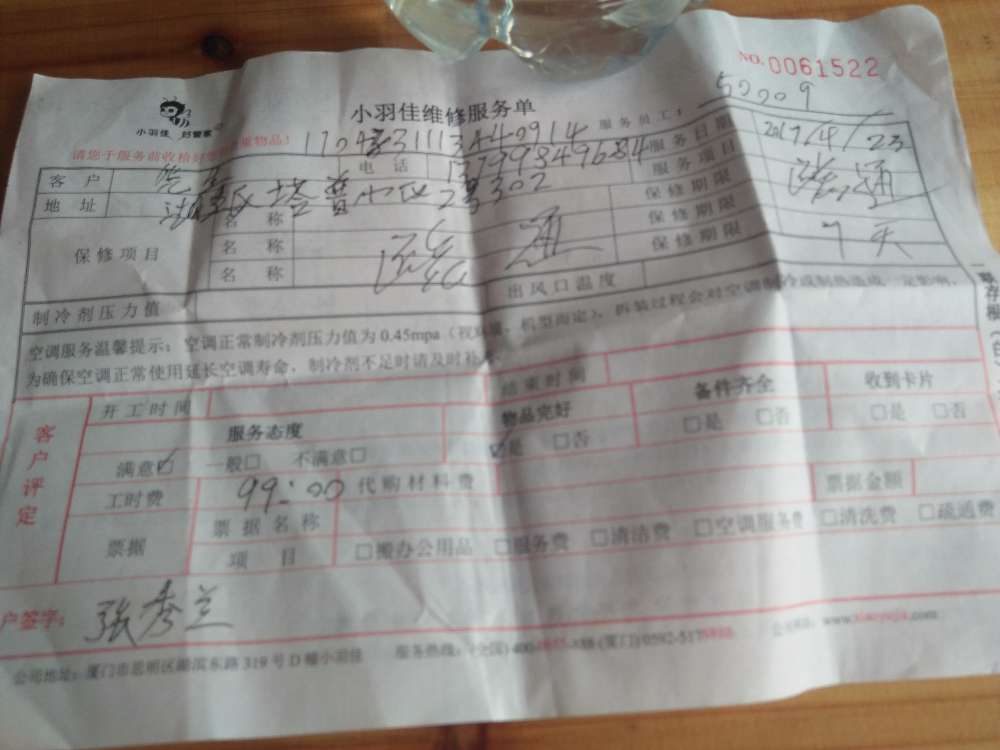 NO.0061522
小羽佳维修服务单
小羽佳 好管家
服务员工: 50009
请您于服务前收拾好贵重物品!
客户 电话 13799849684 服务日期 2017/4/23
地址 湖里区塔普小区2号302 服务项目 疏通
保修项目 名称 疏通 保修期限 7天
名称 保修期限
名称 保修期限
制冷剂压力值 出风口温度
空调服务温馨提示: 空调正常制冷剂压力值为0.45mpa(视 机型而定)、拆装过程会对空调制冷或制热造成一定影响,
为确保空调正常使用延长空调寿命, 制冷剂不足时请及时补
客户评定
开工时间 结束时间
服务态度 物品完好 备件齐全 收到卡片
满意☑ 一般□ 不满意□ ☑是 □否 □是 □否 □是 □否
工时费 99:00 代购材料费 票据金额
票据 票据名称
项目 □搬办公用品 □服务费 □清洁费 □空调服务费 □清洗费 □疏通费
户签字: 张秀兰
公司地址: 厦门市思明区湖滨东路319号D幢小羽佳 服务热线: (全国)400 (厦门)0592-517 公司网址: www.xiaoyujia.com